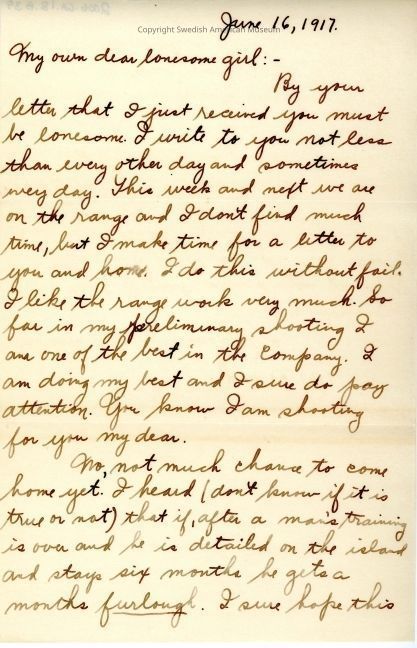 June 16, 1917.
Copyright Swedish American Museum
My own dear lonesome girl:-
By your
letter that I just received you must
be lonesome. I write to you not less
than every other day and sometimes
every day. This week and next we are
on the range and I don't find much
time, but I make time for a letter to
you and home. I do this without fail.
I like the range work very much. So
far in my preliminary shooting I
am one of the best in the Company. I
am doing my best and I sure do pay
attention. You know I am shooting
for you my dear.
No, not much chance to come
home yet. I heard (don't know if it is
true or not) that if, after a man's training
is over and he is detailed on the island
and stays six months he gets a
months furlough. I sure hope this